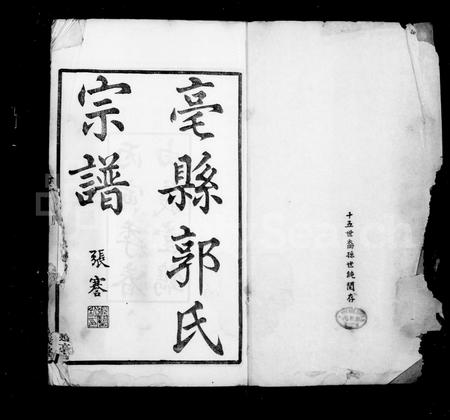 亳縣郭氏
宗譜
張謇
十五世裔孫世純閱存